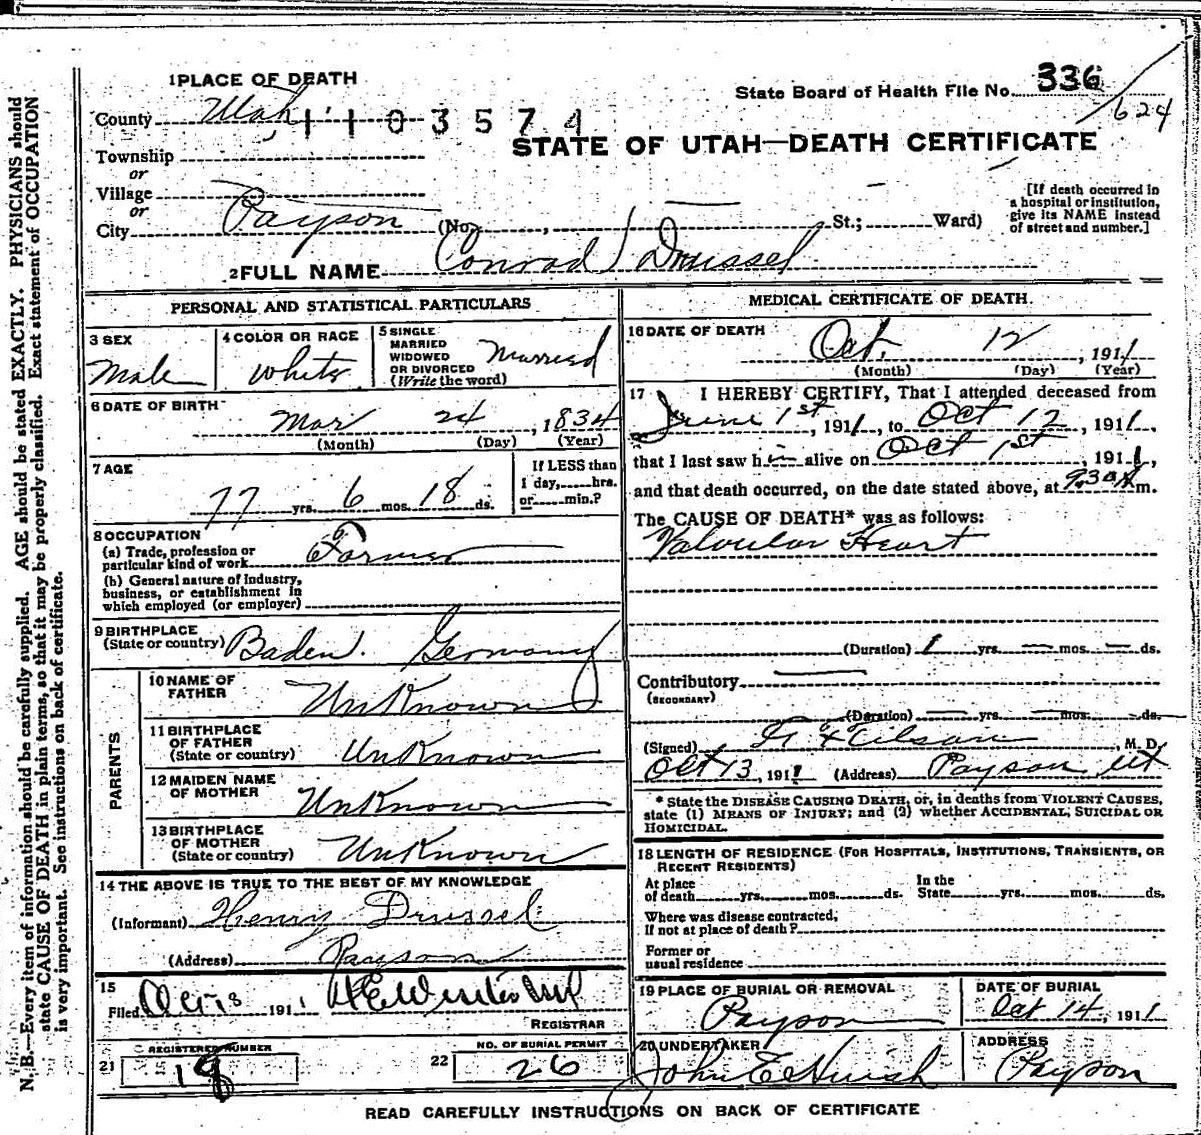 1 PLACE OF DEATH
State Board of Health File No. 336
/624
County Utah
1103574
STATE OF UTAH—DEATH CERTIFICATE
Township
or
Village
or
City Payson (No. , St.; Ward)
[If death occurred in
a hospital or institution,
give its NAME instead
of street and number.]
2 FULL NAME Conrad Draissel
PERSONAL AND STATISTICAL PARTICULARS
3 SEX
Male
4 COLOR OR RACE
White
5 SINGLE
MARRIED
WIDOWED
OR DIVORCED
(Write the word)
Married
6 DATE OF BIRTH
Mar 24, 1834
(Month) (Day) (Year)
7 AGE
77 yrs. 6 mos. 18 ds.
If LESS than
1 day, hrs.
or min.?
8 OCCUPATION
(a) Trade, profession or
particular kind of work Farmer
(b) General nature of industry,
business, or establishment in
which employed (or employer)
9 BIRTHPLACE
(State or country) Baden. Germany
PARENTS
10 NAME OF
FATHER UnKnown
11 BIRTHPLACE
OF FATHER
(State or country) UnKnown
12 MAIDEN NAME
OF MOTHER UnKnown
13 BIRTHPLACE
OF MOTHER
(State or country) UnKnown
14 THE ABOVE IS TRUE TO THE BEST OF MY KNOWLEDGE
(Informant) Henry Drussel
(Address) Payson
15
Filed 1911
REGISTRAR
REGISTERED NUMBER
21 18
NO. OF BURIAL PERMIT
22 26
MEDICAL CERTIFICATE OF DEATH.
16 DATE OF DEATH
Oct. 12, 1911
(Month) (Day) (Year)
17 I HEREBY CERTIFY, That I attended deceased from
June 1st, 1911, to Oct 12, 1911,
that I last saw him alive on Oct 1st, 1911,
and that death occurred, on the date stated above, at 9.30 A m.
The CAUSE OF DEATH* was as follows:
Valvular Heart
(Duration) 1 yrs. — mos. — ds.
Contributory —
(SECONDARY)
(Duration) — yrs. — mos. — ds.
(Signed) , M. D.
Oct 13, 1911 (Address) Payson Ut
* State the DISEASE CAUSING DEATH, or, in deaths from VIOLENT CAUSES,
state (1) MEANS OF INJURY; and (2) whether ACCIDENTAL, SUICIDAL OR
HOMICIDAL.
18 LENGTH OF RESIDENCE (FOR HOSPITALS, INSTITUTIONS, TRANSIENTS, OR
RECENT RESIDENTS)
At place
of death yrs. mos. ds.
In the
State yrs. mos. ds.
Where was disease contracted,
If not at place of death?
Former or
usual residence
19 PLACE OF BURIAL OR REMOVAL
Payson
DATE OF BURIAL
Oct 14, 1911
20 UNDERTAKER
John E Huish
ADDRESS
Payson
READ CAREFULLY INSTRUCTIONS ON BACK OF CERTIFICATE
N. B.—Every item of information should be carefully supplied. AGE should be stated EXACTLY. PHYSICIANS should
state CAUSE OF DEATH in plain terms, so that it may be properly classified. Exact statement of OCCUPATION
is very important. See instructions on back of certificate.